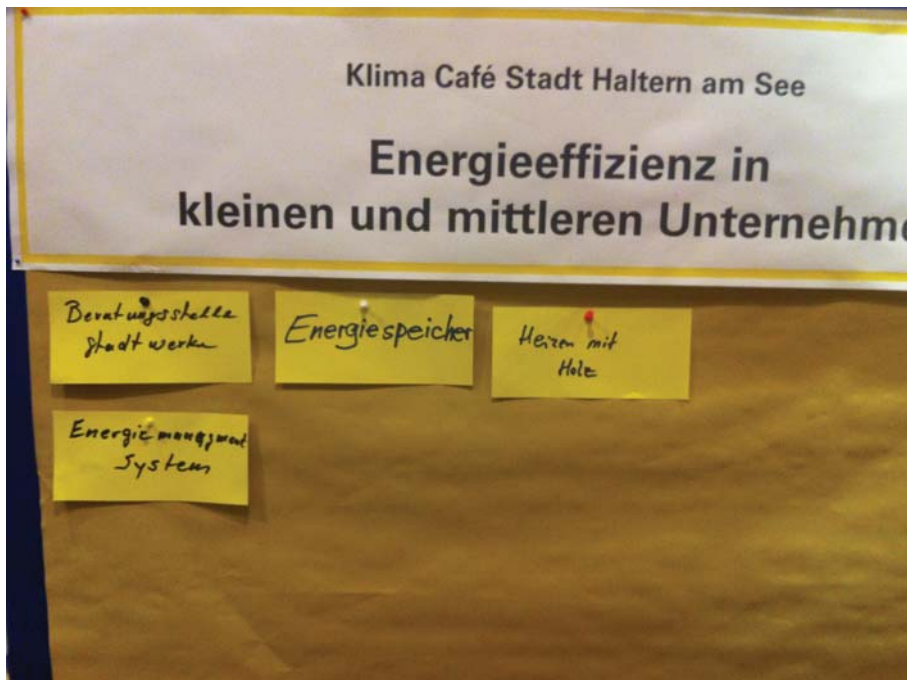 Klima Café Stadt Haltern am See
Energieeffizienz in
kleinen und mittleren Unternehme
Beratungsstelle
Stadtwerke
Energiespeicher
Heizen mit
Holz
Energiemanagment
System